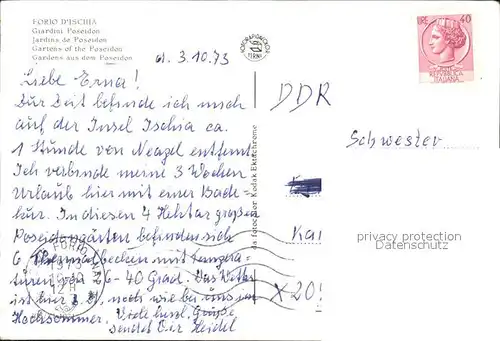 FORIO D'ISCHIA
Giardini Poseidon
Jardins de Poseidon
Gartens of the Poseidon
Gardens aus dem Poseidon
d. 3.10.73
LIRE 40
REPUBBLICA
ITALIANA
Liebe Erna!
Zur Zeit befinde ich mich
auf der Insel Ischia ca.
1 Stunde von Neapel entfernt.
Ich verbinde meine 3 Wochen
Urlaub hier mit einer Bade-
kur. In diesen 4 Hektar großen
Poseidongärten befinden sich
6 Thermalbecken mit Tempera-
turen von 6-40 Grad. Das Wetter
ist hier z.Zt. noch wie bei uns im
Hochsommer. Viele herzl. Grüße
sendet Dir Heidel
da fotocolor Kodak Ektachrome
DDR
Schwester
Kar
X 20
privacy protection
Datenschutz
FORIO
1973
12H